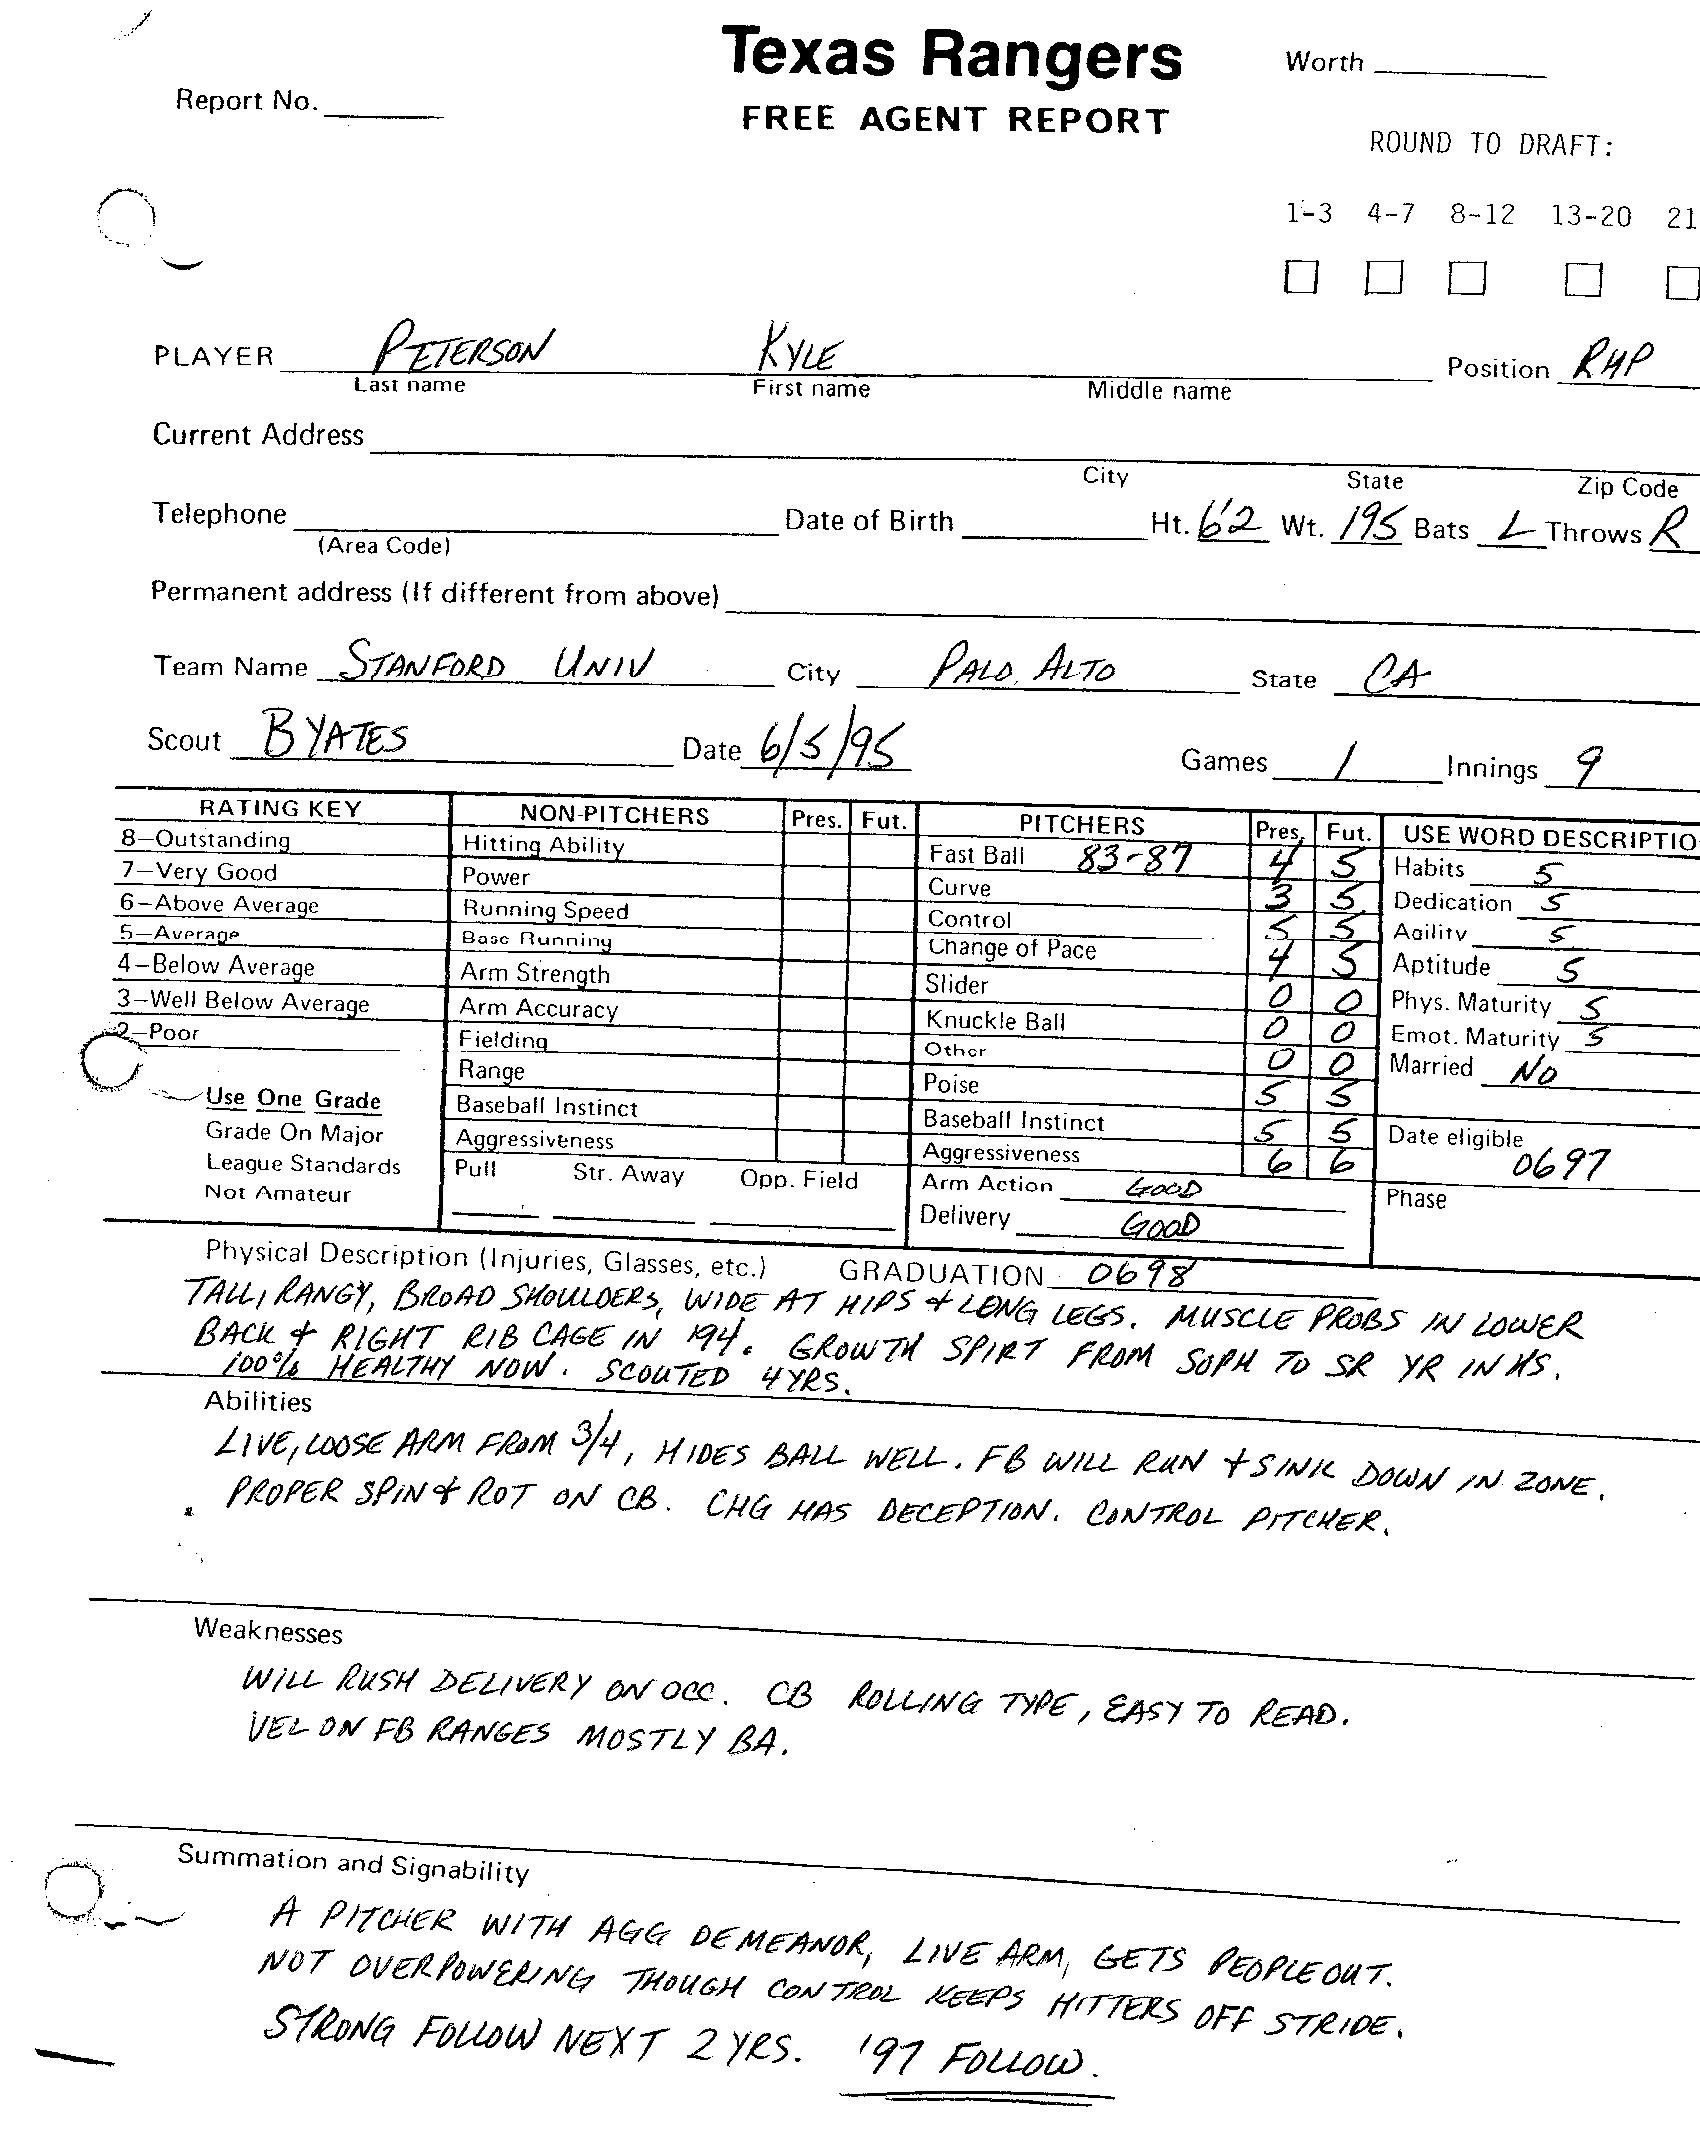 Texas Rangers
Worth
Report No.
FREE AGENT REPORT
ROUND TO DRAFT:
1-3 4-7 8-12 13-20 21
PLAYER PETERSON KYLE Position RHP
Last name First name Middle name
Current Address
City State Zip Code
Telephone Date of Birth Ht. 6'2 Wt. 195 Bats L Throws R
(Area Code)
Permanent address (If different from above)
Team Name STANFORD UNIV City PALO ALTO State CA
Scout B YATES Date 6/5/95 Games 1 Innings 9
RATING KEY NON-PITCHERS Pres. Fut. PITCHERS Pres. Fut. USE WORD DESCRIPTIO
8—Outstanding Hitting Ability Fast Ball 83-87 4 5 Habits 5
7—Very Good Power Curve 3 5 Dedication 5
6—Above Average Running Speed Control 5 5 Agility 5
5—Average Base Running Change of Pace 4 5 Aptitude 5
4—Below Average Arm Strength Slider 0 0 Phys. Maturity 5
3—Well Below Average Arm Accuracy Knuckle Ball 0 0 Emot. Maturity 5
2—Poor Fielding Other 0 0 Married NO
Range Poise 5 5
Use One Grade Baseball Instinct Baseball Instinct 5 5 Date eligible 0697
Grade On Major Aggressiveness Aggressiveness 6 6
League Standards Pull Str. Away Opp. Field Arm Action GOOD Phase
Not Amateur Delivery GOOD
Physical Description (Injuries, Glasses, etc.) GRADUATION 0698
TALL, RANGY, BROAD SHOULDERS, WIDE AT HIPS & LONG LEGS. MUSCLE PROBS IN LOWER
BACK & RIGHT RIB CAGE IN '94. GROWTH SPIRT FROM SOPH TO SR YR IN HS.
100% HEALTHY NOW. SCOUTED 4 YRS.
Abilities
LIVE, LOOSE ARM FROM 3/4, HIDES BALL WELL. FB WILL RUN & SINK DOWN IN ZONE.
PROPER SPIN & ROT ON CB. CHG HAS DECEPTION. CONTROL PITCHER.
Weaknesses
WILL RUSH DELIVERY ON OCC. CB ROLLING TYPE, EASY TO READ.
VEL ON FB RANGES MOSTLY BA.
Summation and Signability
A PITCHER WITH AGG DEMEANOR, LIVE ARM, GETS PEOPLE OUT.
NOT OVERPOWERING THOUGH CONTROL KEEPS HITTERS OFF STRIDE.
STRONG FOLLOW NEXT 2 YRS. '97 FOLLOW.